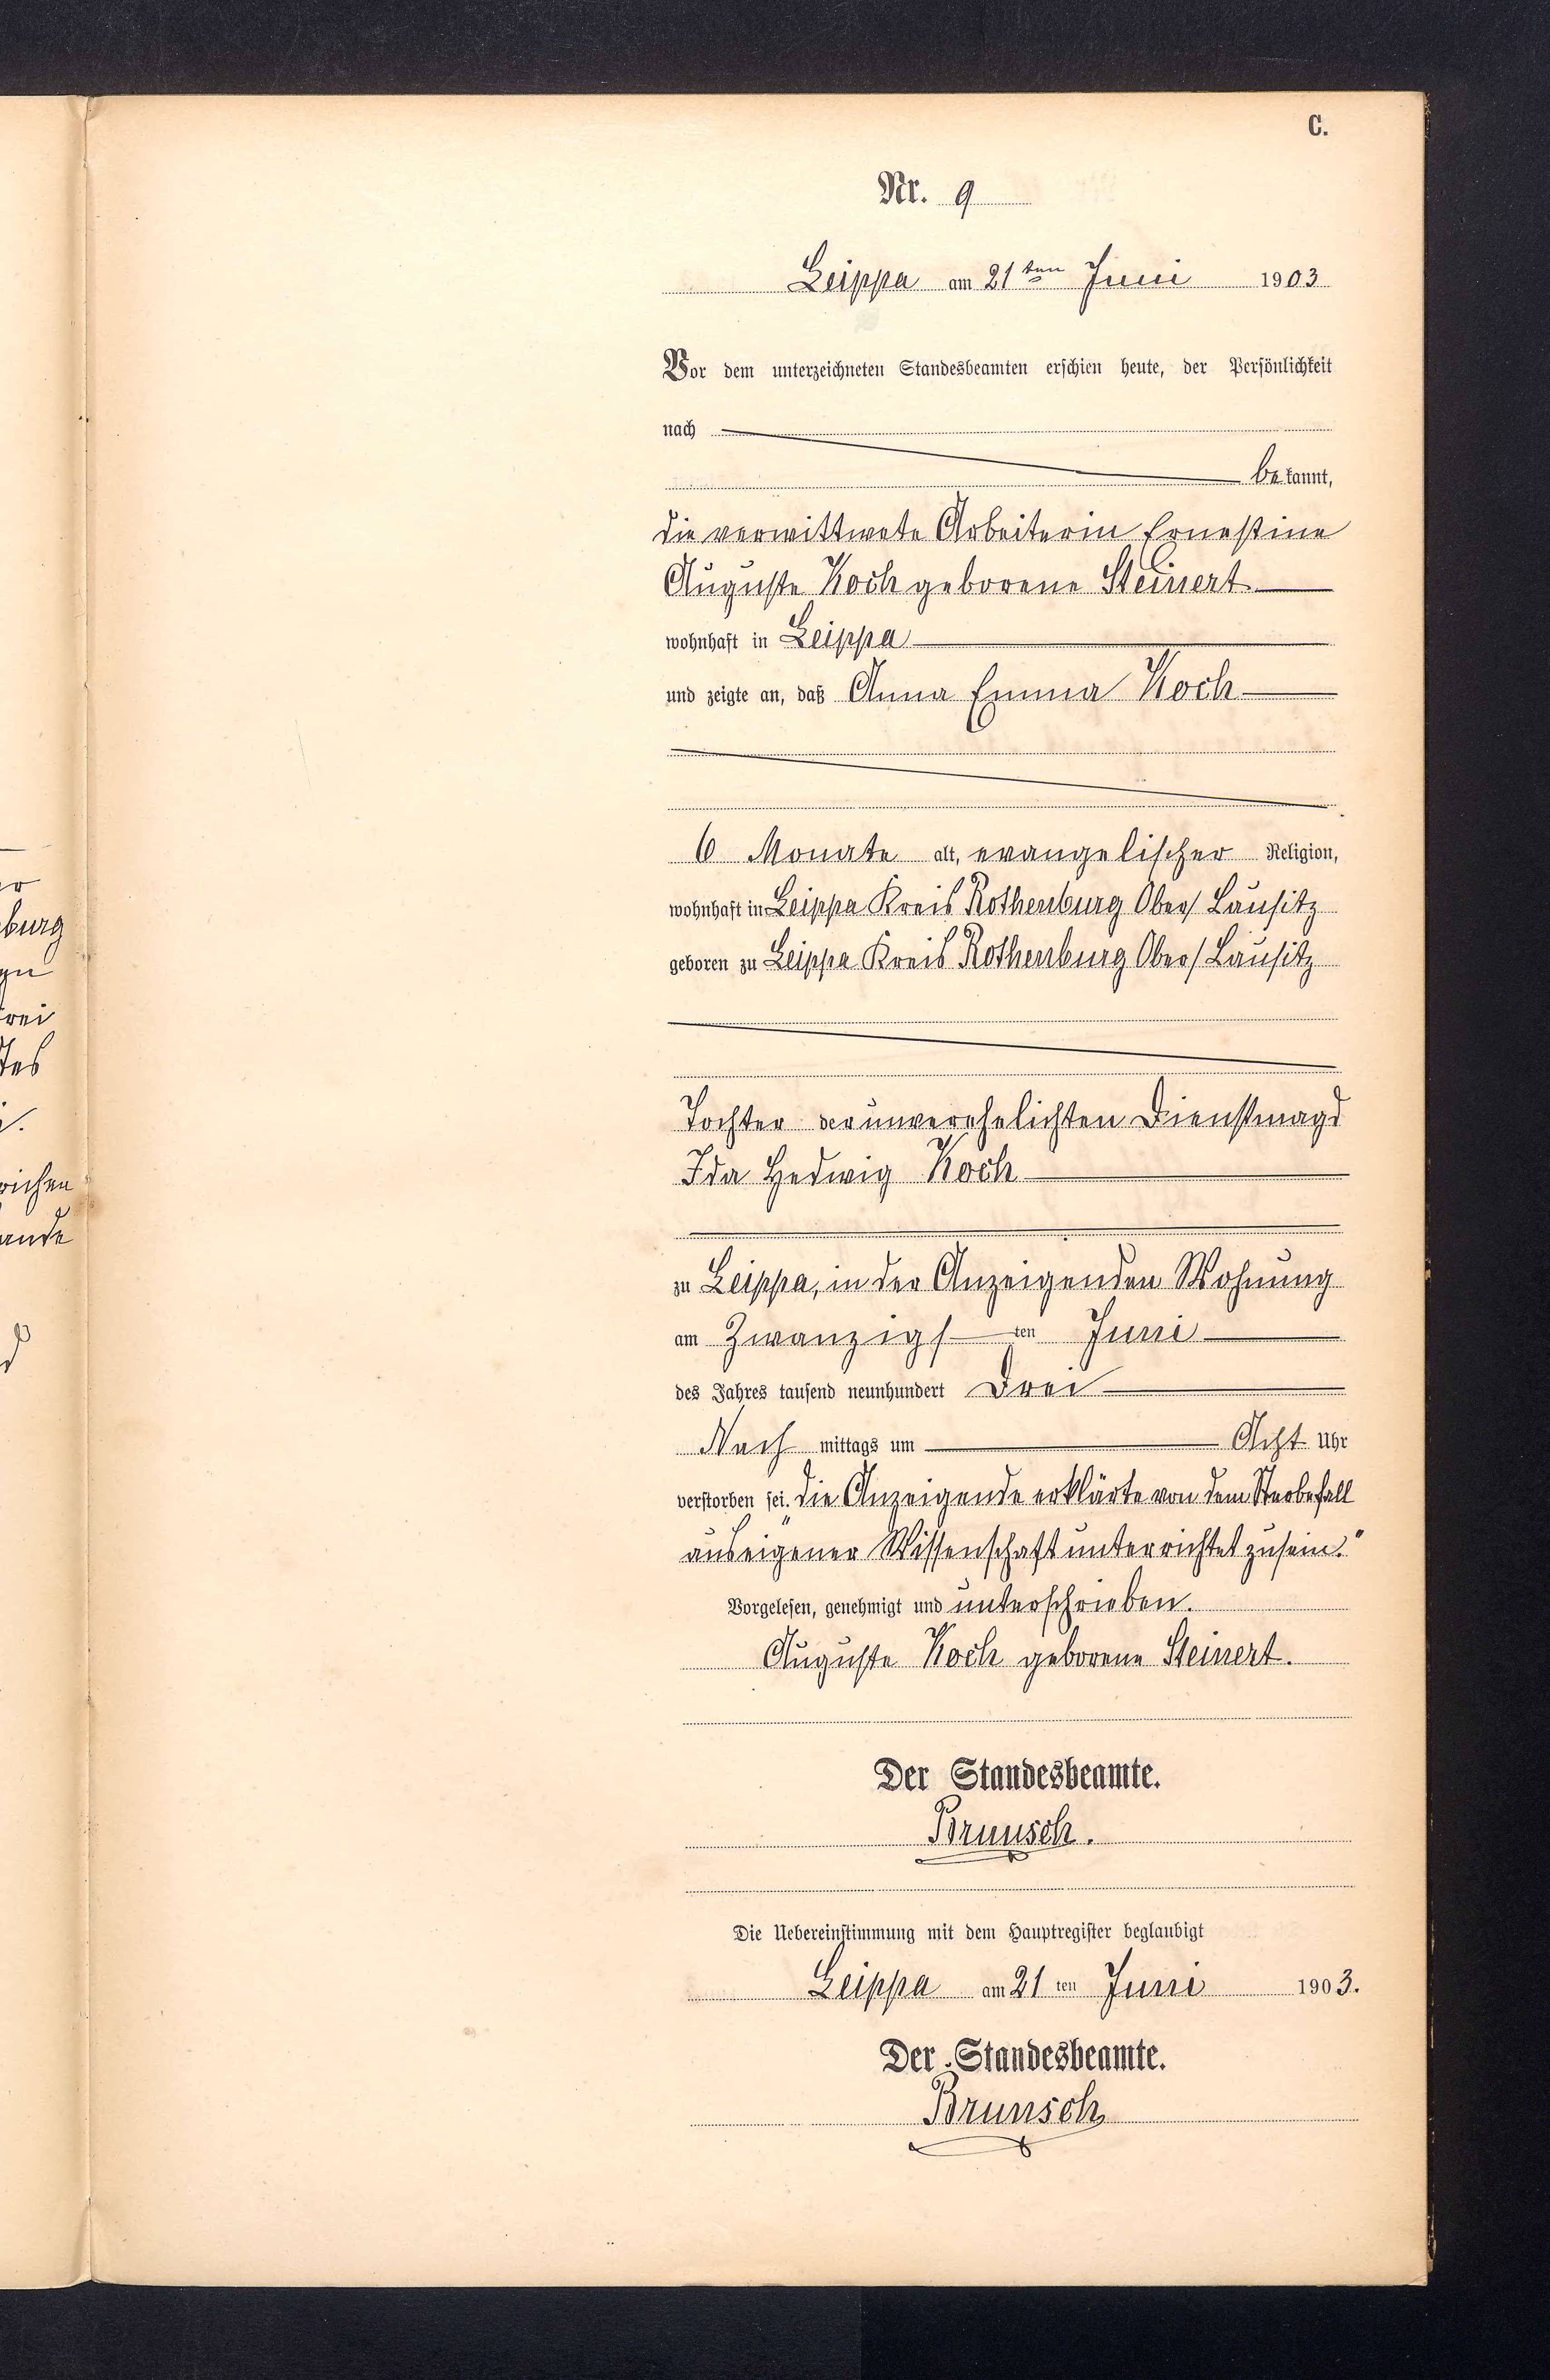 C.
Nr. 9
Leippa am 21ten Juni 1903
Vor dem unterzeichneten Standesbeamten erschien heute, der Persönlichkeit
nach
bekannt,
die verwittwete Arbeiterin Ernestine
Auguste Koch geborene Steinert
wohnhaft in Leippa
und zeigte an, daß Anna Emma Koch
6 Monate alt, evangelischer Religion,
wohnhaft in Leippa Kreis Rothenburg Ober/ Lausitz
geboren zu Leippa Kreis Rothenburg Ober/ Lausitz
Tochter der unverehelichten Dienstmagd
Ida Hedwig Koch
zu Leippa, in der Anzeigenden Wohnung
am Zwanzigsten Juni
des Jahres tausend neunhundert Drei
Nach mittags um Acht Uhr
verstorben sei. die Anzeigende erklärte von dem Sterbefall
„aus eigener Wissenschaft unterrichtet zu sein."
Vorgelesen, genehmigt und unterschrieben.
Auguste Koch geborene Steinert.
Der Standesbeamte.
Brunsch.
Die Uebereinstimmung mit dem Hauptregister beglaubigt
Leippa am 21ten Juni 1903.
Der Standesbeamte.
Brunsch